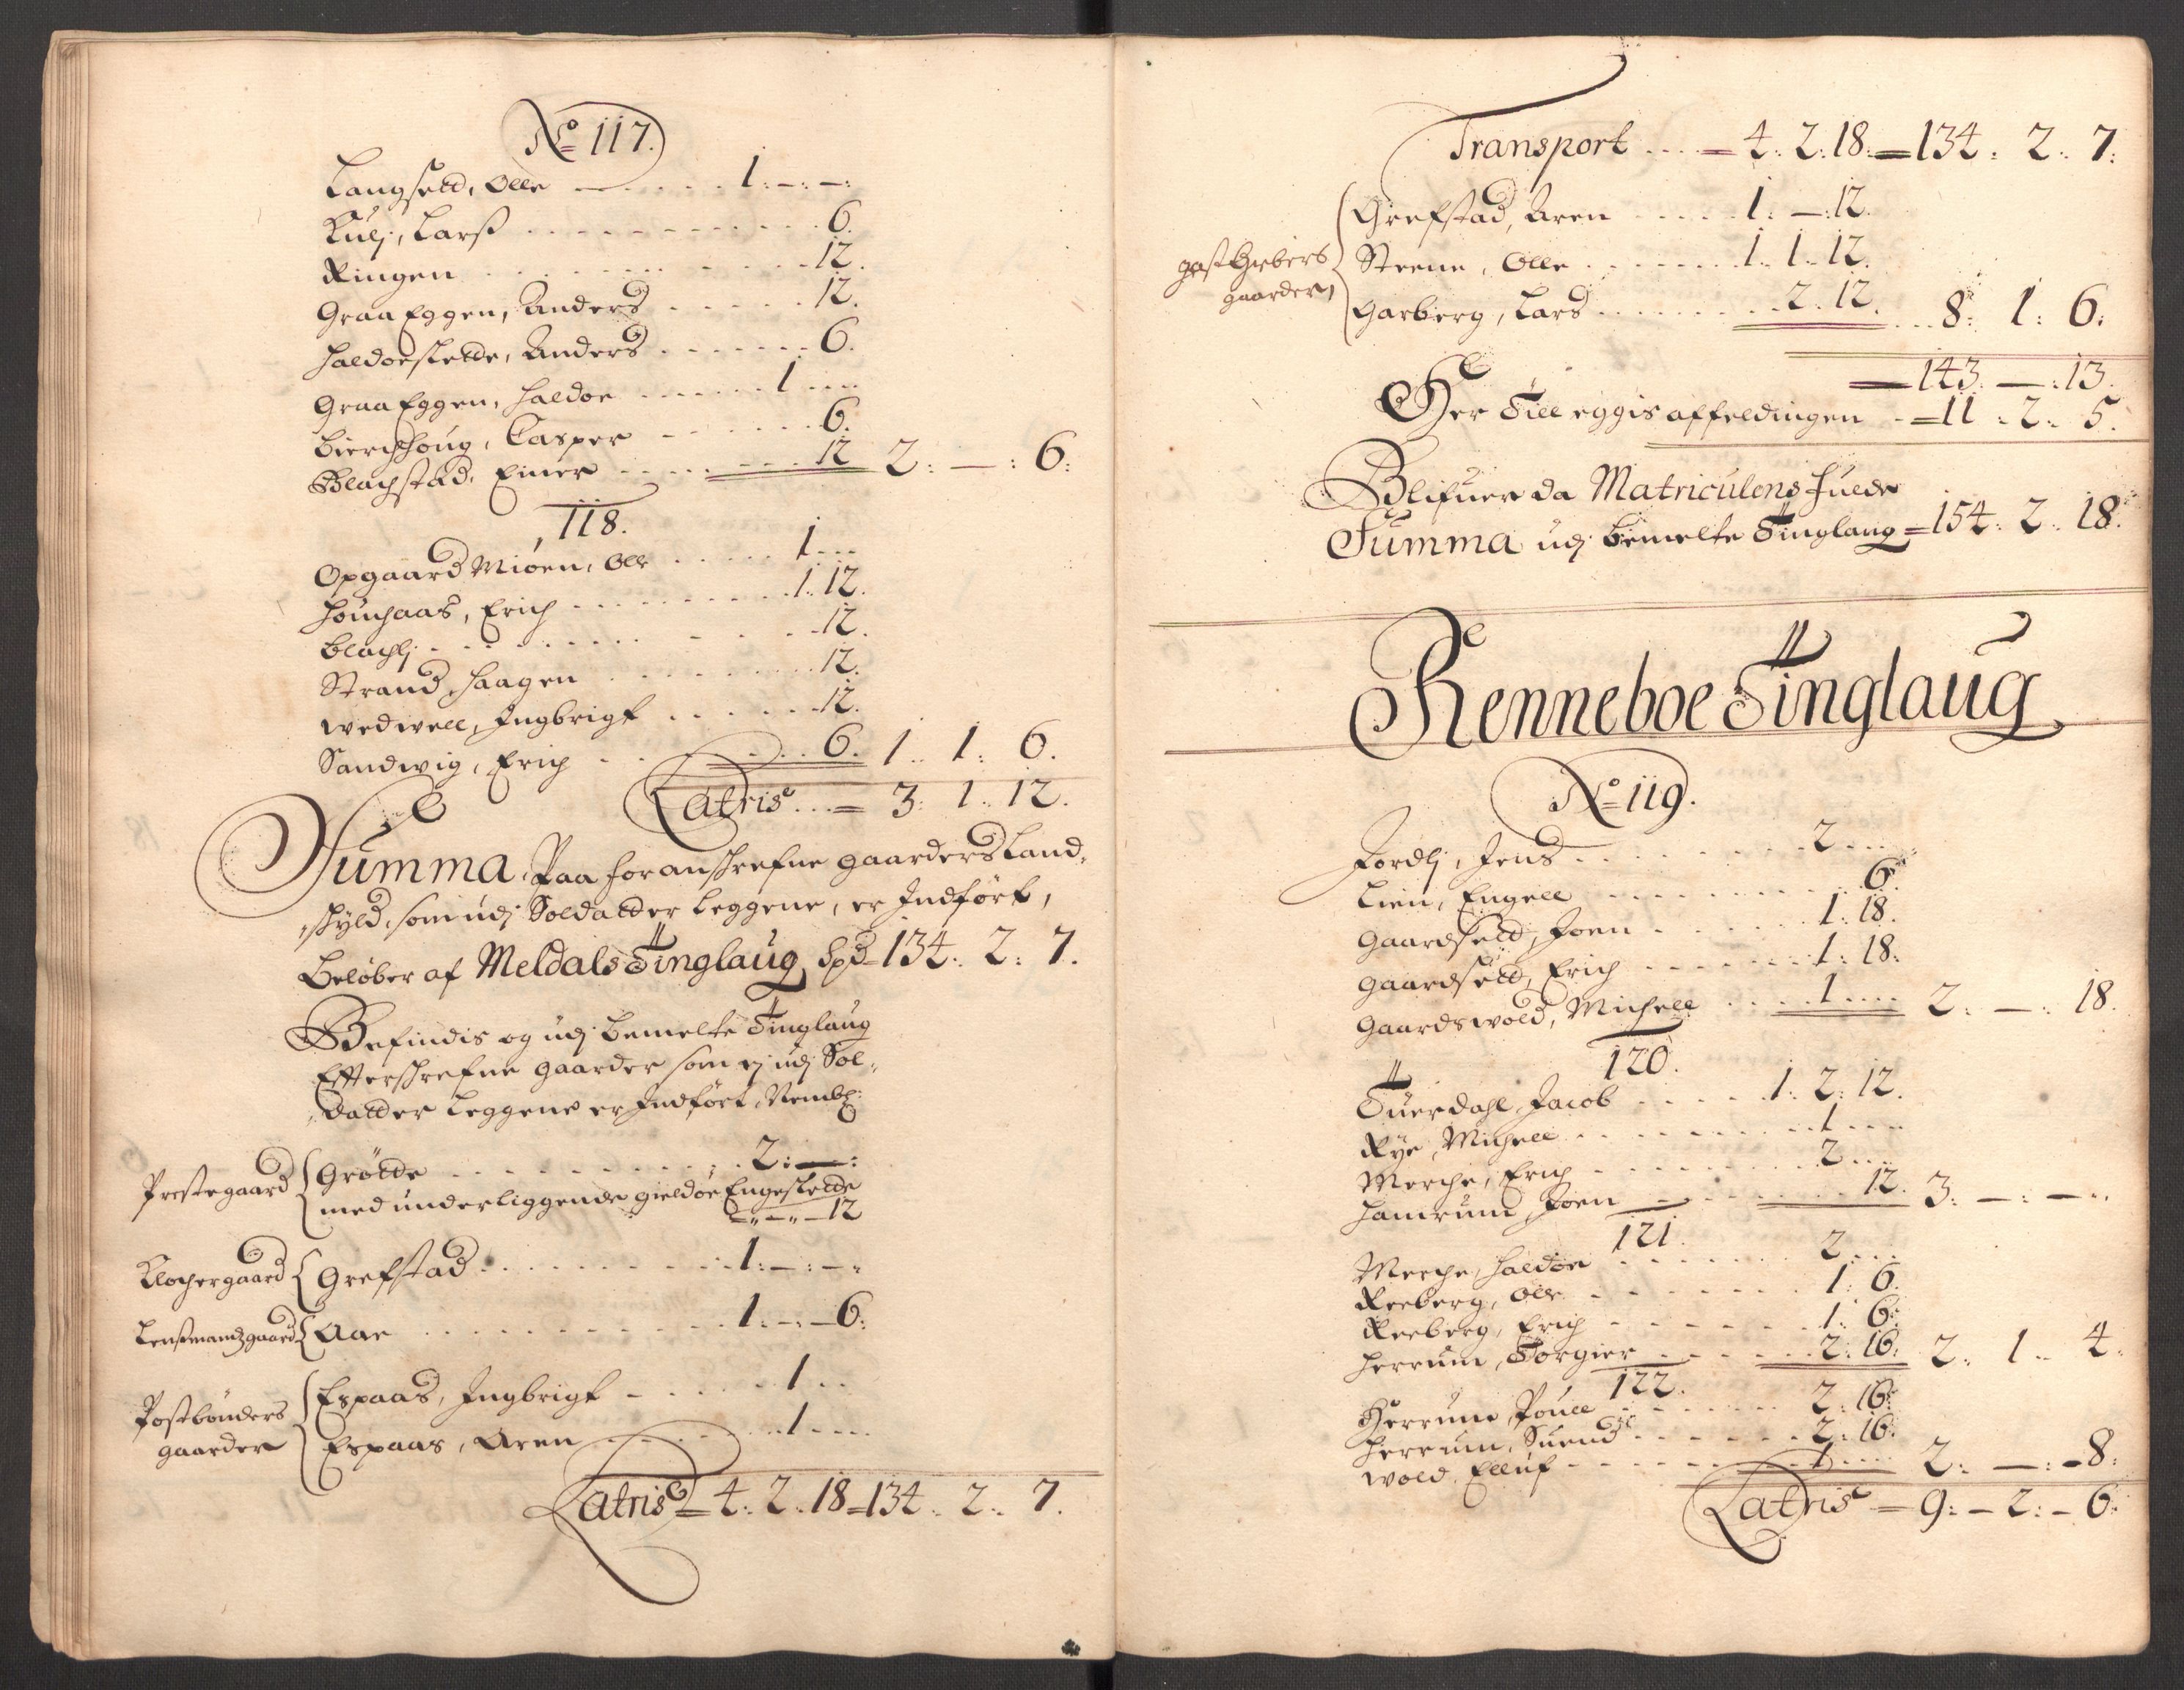 No 117.
Langsetd, Olle - . . . . 1:-:-:
Kulj, Larß . . . . . . . . . . 6.
Ringen . . . . . . . . . . 12.
Graa Eggen, Anders . . . . . 12.
Haldorsletde, Anders . . . . . . 6.
Graa Eggen, Haldor . . . . . 1 . . .
Bierchhoug, Casper - . . . . . 6.
Blachstad, Einer . . . . . . 12 2: - : 6:
118.
Opgaard Mioen, Olle . . . . . 1 . . .
Houghaas, Erich . . . . . . . 1. 12.
Blachlj . . . . . . . . 12.
Strand, Haagen . . . . . . . 12.
Wedwell, Ingbrigt . . . . . 12.
Sandwig, Erich . . . . . 6. 1. 1: 6.
Latris . . = 3: 1. 12.
Summa, Paa foranskrefne gaarders Land,
skyld, som udj Soldatder leggene, er Indført,
Beløber af Meldals Tinglaug Spd 134. 2: 7.
Befindis og udj bemelte Tinglaug
Efterskrefne gaarder som ej udj Sol-
datder leggene er Indført, Nembl:
Prestegaard { Grötde . . . . . . . . . 2:-:
med underliggende gieldøe Engesletde
-"-"-12
Klochergaard { Grefstad . . . . . . . . 1:-:-"
Lensmandzgaard { Aae . . . . . . . . . 1:-:-6:
Postbønders gaarder { Espaas, Ingbrigt - . . . . 1 . .
Espaas, Aren . . . . . . 1 . . .
Latris = 4. 2. 18 = 134. 2. 7.
Transport . . . = 4. 2. 18. = 134. 2. 7.
gastgiebers gaarder { Grefstad, Aren . . . . 1. -. 12.
Steene, Olle . . . . . . 1. 1. 12.
Garberg, Lars . . . . . . . 2. 12. . . 8. 1. 6.
= 143. -: 13.
Her Till eggis affeldingen - = 11. 2. 5.
Blifuer da Matriculens fulde
Summa udj bemelte Tinglaug = 154. 2. 18.
Renneboe Tinglaug
No 119.
Jordlj, Jens . . . . . . . . 2 . . .
Lien, Engell . . . . . . . . 6.
Gaardsetd, Joen . . . . . . 1. 18.
Gaardsetd, Erich . . . . . . 1. 18.
Gaardswold, Michell . . . . 1 . . . 2. -. 18.
120.
Tuerdahl, Jacob . . . . . 1. 2. 12.
Rye, Michell . . . . . . . . 1 . . .
Merche, Erich . . . . . . . 2 . . .
Hamrum, Joen . . . . . . . 12. 3: -: -"
121.
Merche, Haldor . . . . . . 2 . . .
Reeberg, Olle . . . . . . . 1. 6.
Reeberg, Erich . . . . . . . 1. 6.
Herrum, Torgier . . . . . . 2. 16. 2. 1. 4.
122.
Herrum, Pouel . . . . . . 2. 16.
Herrum, Suend . . . . . . 2. 16.
Wold, Elluf . . . . . . . 1 . . . 2. -: -8.
Latris = 9: - 2: - 6.